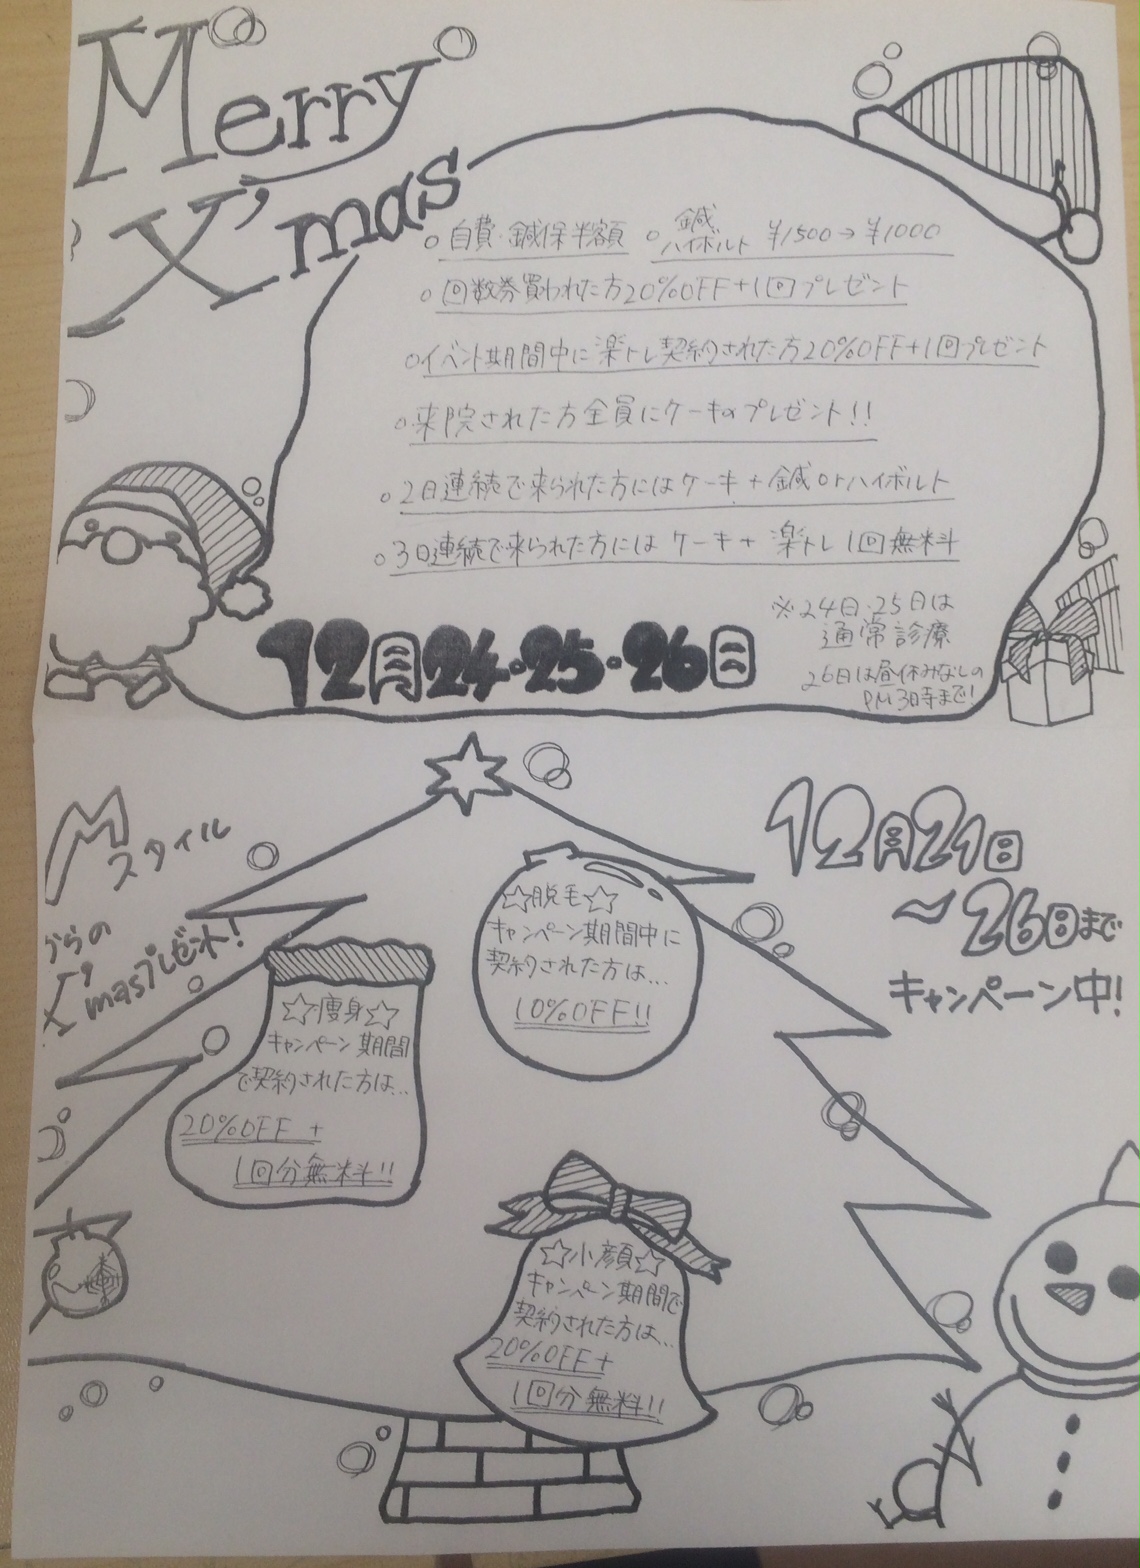 Merry
X'mas
○自費・鍼保半額 ○鍼ハイボルト ¥1500→¥1000
○回数券買われた方20%OFF+1回プレゼント
○イベント期間中に楽トレ契約された方20%OFF+1回プレゼント
○来院された方全員にケーキのプレゼント!!
○2日連続で来られた方にはケーキ+鍼orハイボルト
○3日連続で来られた方にはケーキ+楽トレ1回無料
※24日・25日は
通常診療
26日は昼休みなしの
PM3時まで!
12月24・25・26日
Mスタイル
からの
X'masプレゼント!
12月21日
~26日まで
キャンペーン中!
☆脱毛☆
キャンペーン期間中に
契約された方は…
10%OFF!!
☆痩身☆
キャンペーン期間
で契約された方は…
20%OFF+
1回分無料!!
☆小顔☆
キャンペーン期間で
契約された方は…
20%OFF+
1回分無料!!